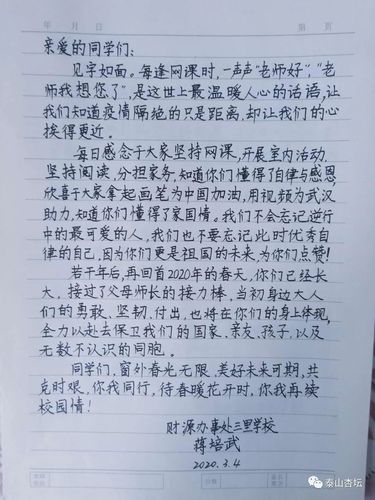 年 月 日 第 页
亲爱的同学们:
见字如面。每逢网课时,一声声“老师好”,“老
师我想您了”,是这世上最温暖人心的话语,让
我们知道疫情隔绝的只是距离,却让我们的心
挨得更近。
每日感念于大家坚持网课,开展室内活动.
坚持阅读、分担家务.知道你们懂得了自律与感恩,
欣喜于大家拿起画笔为中国加油,用视频为武汉
助力,知道你们懂得了家国情。我们不会忘记逆行
中的最可爱的人,我们也不要忘记此时优秀自
律的自己,因为你们更是祖国的未来,为你们点赞!
若干年后,再回首2020年的春天,你们已经长
大,接过了父母师长的接力棒,当初身边大人
们的勇敢、坚韧、付出,也将在你们的身上体现,
全力以赴去保卫我们的国家、亲友、孩子,以及
无数不认识的同胞。
同学们,窗外春光无限,美好未来可期,共
克时艰,你我同行,待春暖花开时,你我再续
校园情!
财源办事处三里学校
蒋培武
2020.3.4
泰山杏坛